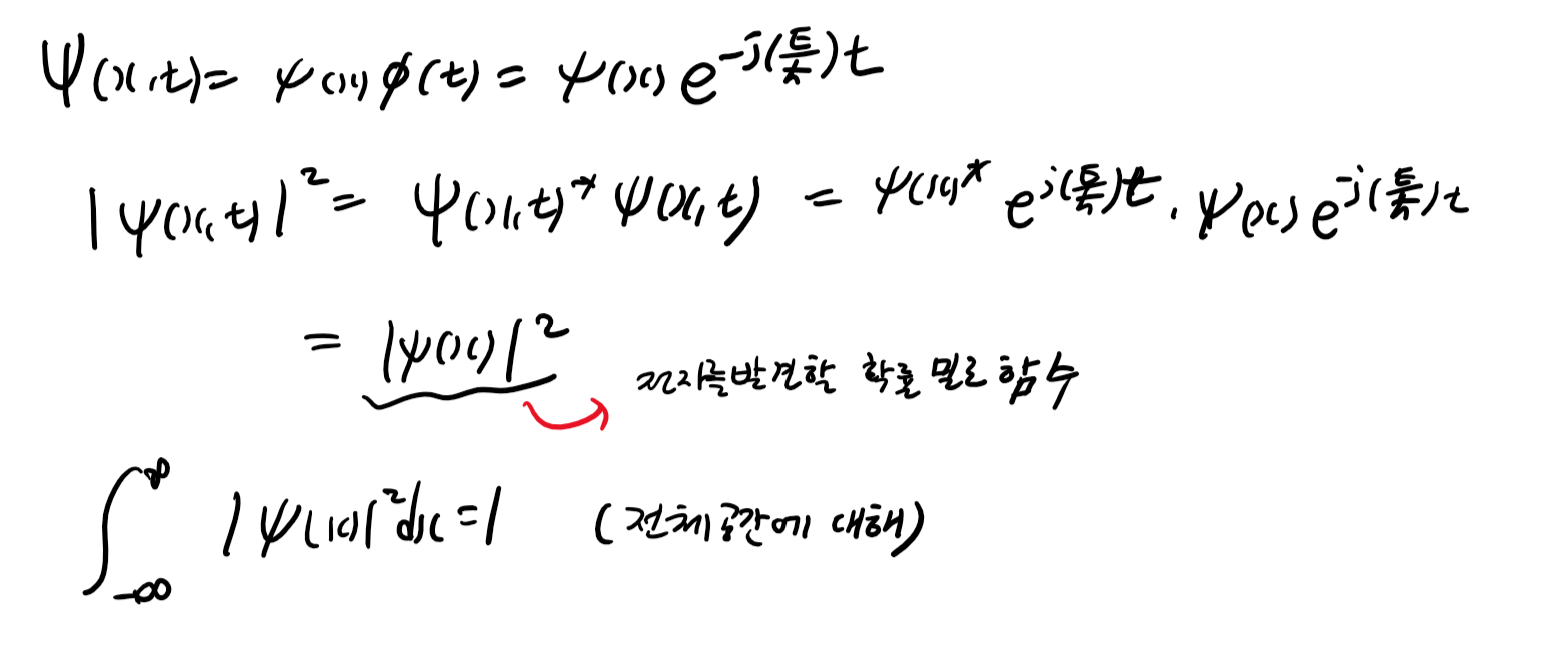 Ψ(x,t) = ψ(x)φ(t) = ψ(x) e^{-j(E/ħ)t}
|Ψ(x,t)|² = Ψ(x,t)* Ψ(x,t) = ψ(x)* e^{j(E/ħ)t} · ψ(x) e^{-j(E/ħ)t}
= |ψ(x)|² 전자를 발견할 확률 밀도 함수
∫_{-∞}^{∞} |ψ(x)|² dx = 1 (전체 공간에 대해)